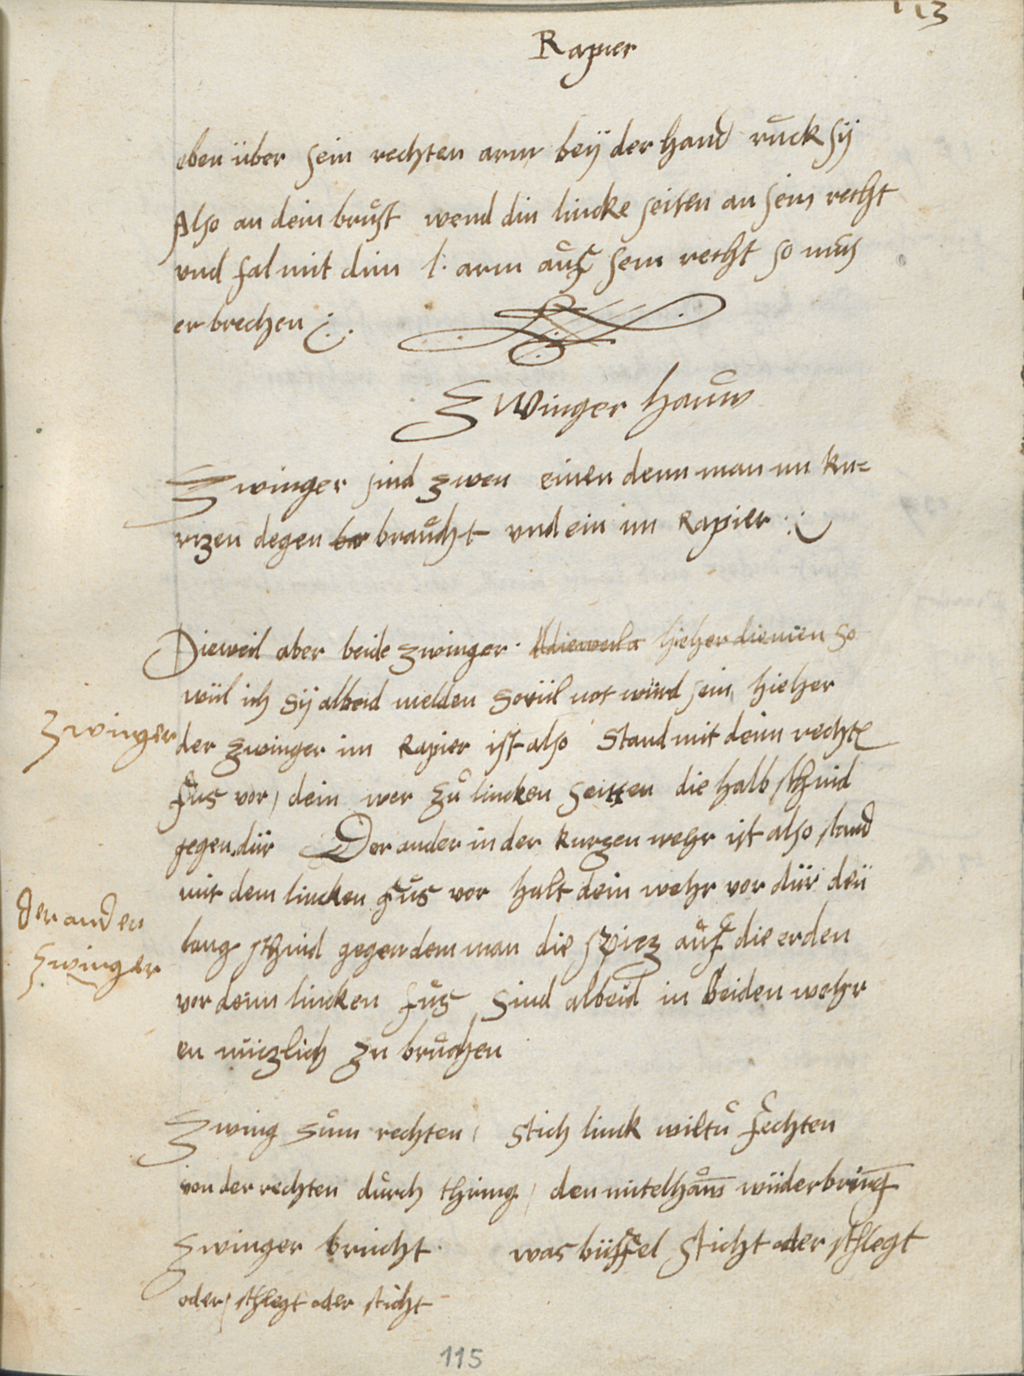 113
Rapier
eben über sein rechten arm beÿ der hand ruck sÿ
Also an dein brust wend din lincke seiten an sein recht
vnd fal mit dim l. arm auf sein recht so mus
er brechen
Zwinger hauw
Zwinger sind zwen einen denn man im ku=
rzen degen bar braucht vnd ein im Rapier
Dieweil aber beide zwinger dieweila hieher dienen so
wiil ich sÿ albeid melden soviil not wiird sein hieher
Zwinger
der zwinger im Rapier ist also stand mit deim rechte
fus vor / dein wer zu lincken seitten die halb schnid
gegen dür Der ander in der kurzen wehr ist also stand
mit dem lincken fus vor halt dein wehr vor dür deü
der ander
zwinger
lang schnid gegen dem man die spicz auf die erden
vor deim lincken fus sind albeid in beiden wehr
en nüczlich zu bruchen
Zwing zum rechten / stich linck wiltu fechten
von der rechten durch thring / den mitelhauw wiiderbring
Zwinger bricht was büffel sticht oder schlegt
oder / schlegt oder sticht
115